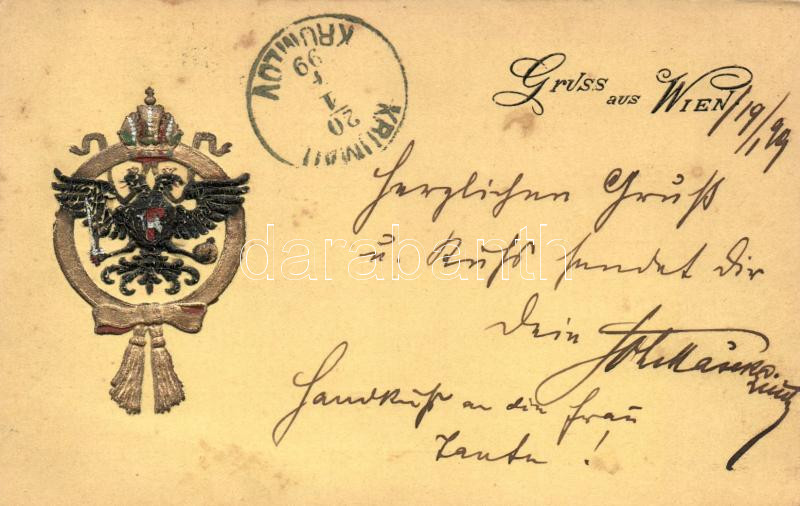 KRUMAU
20
1
99
KRUMLOV
Gruss aus Wien
19/1 99
Herzlichen Gruß
u. Kuß sendet dir
Dein
Handkuß an die Frau
Tante!
darabanth